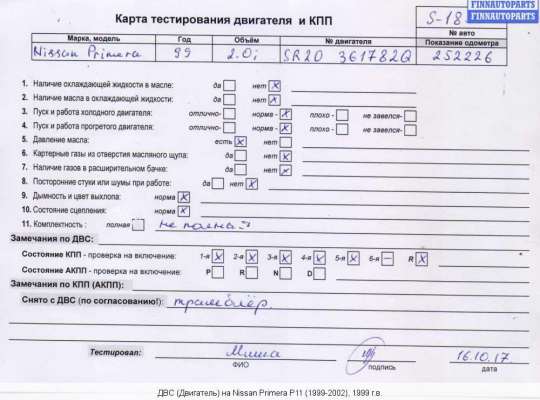 FINNAUTOPARTS
FINNAUTOPARTS
Карта тестирования двигателя и КПП
S-18
№ авто
Марка, модель Год Объём № двигателя Показание одометра
Nissan Primera 99 2.0i SR20 361782Q 252226
1. Наличие охлаждающей жидкости в масле: да нет X
2. Наличие масла в охлаждающей жидкости: да нет X
3. Пуск и работа холодного двигателя: отлично- норма - X плохо - не завелся-
4. Пуск и работа прогретого двигателя: отлично- норма - X плохо - не завелся-
5. Давление масла: есть X нет
6. Картерные газы из отверстия масляного щупа: да нет X
7. Наличие газов в расширительном бачке: да нет X
8. Посторонние стуки или шумы при работе: да нет X
9. Дымность и цвет выхлопа: норма X
10. Состояние сцепления: норма X
11. Комплектность : полная не полная
Замечания по ДВС:
Состояние КПП - проверка на включение: 1-я X 2-я X 3-я X 4-я X 5-я X 6-я — R X
Состояние АКПП - проверка на включение: P R N D
Замечания по КПП (АКПП):
Снято с ДВС (по согласованию!): трамблёр.
Тестировал: Миша 16.10.17
ФИО подпись дата
ДВС (Двигатель) на Nissan Primera P11 (1999-2002), 1999 г.в.